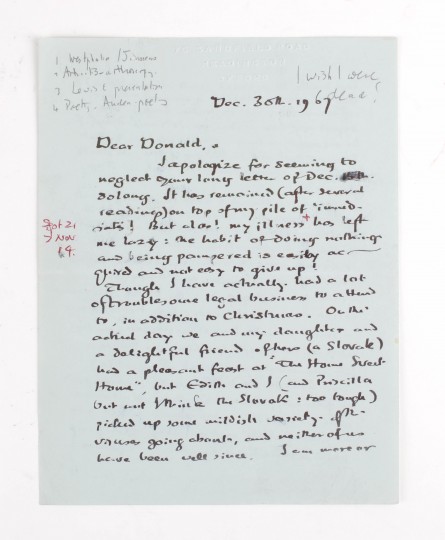 1 Westphalia /
3 Lewis presentation
4 Poetry. Auden poets
I wish I were
dead!
Dec. 30th. 1967
Dear Donald,
I apologize for seeming to
neglect your long letter of Dec.
so long. It has remained (after several
readings) on top of my pile of 'immed-
iats'! But alas! my illness + has left
me lazy: the habit of doing nothing
and being pampered is easily ac-
quired and not easy to give up!
Though I have actually had a lot
of troublesome legal business to attend
to, in addition to Christmas. On the
actual day we and my daughter and
a delightful friend of hers (a Slovak)
had a pleasant feast at "The Home Sweet
Home", but Edith and I (and Priscilla
but not I think the Slovak: too tough)
picked up some mildish variety of the
viruses going about, and neither of us
have been well since. I am more or
Sept 21
> Nov
14.